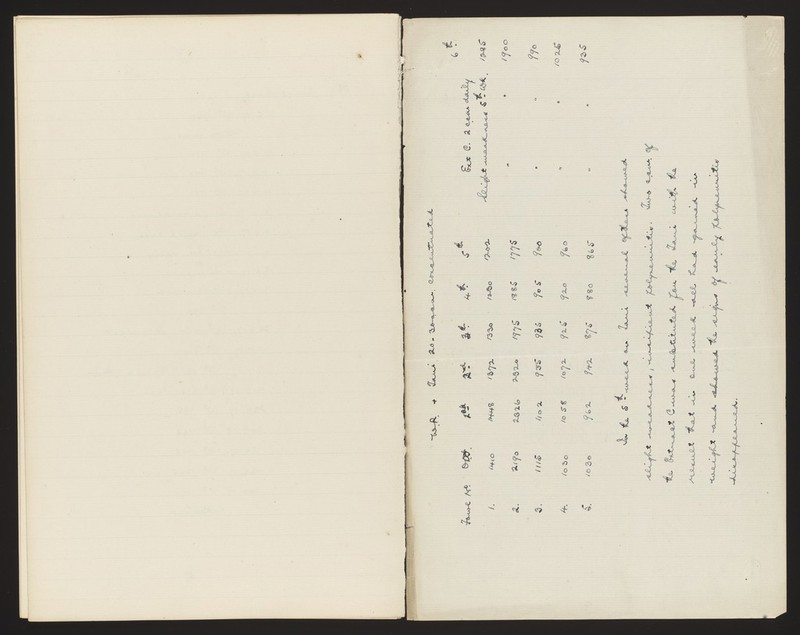 W.R. + Tani 20-30 gram concentrated
Fowl No. Opt. 1st 2nd 3d. 4th 5th Ext C. 2 ccm daily 6th.
1. 1410 1448 1372 1330 1230 1202 Slight weakness 5th Wk. 1285
2. 2190 2326 2320 1975 1885 1775 " " 1900
3. 1115 1102 935 935 905 900 " " 990
4. 1030 1058 1072 925 920 960 " " 1025
5. 1030 962 942 875 880 865 " " 935
In the 5th week on Tani several of them showed
slight weakness, incipient polyneuritis. Two ccm. of
the Extract C was substituted for the Tani with the
result that in one week all had gained in
weight and showed the signs of early polyneuritis
disappeared.